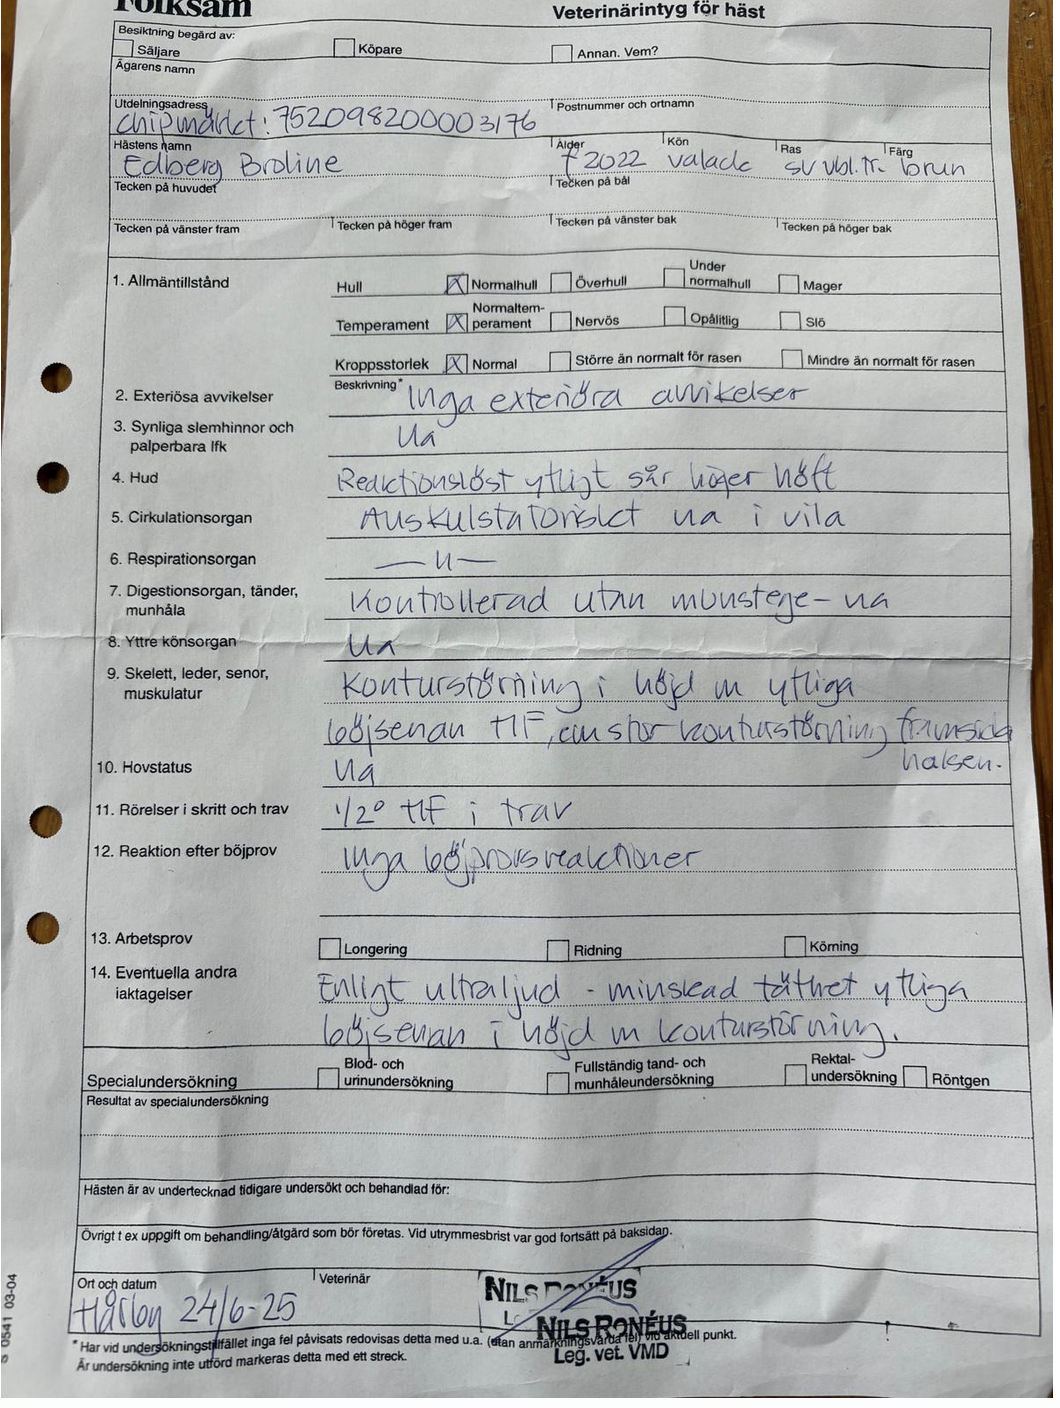 Folksam
Veterinärintyg för häst
Besiktning begärd av:
Säljare Köpare Annan. Vem?
Ägarens namn
Utdelningsadress Postnummer och ortnamn
Chipmärkt: 752098200003176
Hästens namn Ålder Kön Ras Färg
Edberg Broline f 2022 valack sv vbl.tr. brun
Tecken på huvudet Tecken på bål
Tecken på vänster fram Tecken på höger fram Tecken på vänster bak Tecken på höger bak
1. Allmäntillstånd Hull X Normalhull Överhull Under normalhull Mager
Temperament X Normaltem-perament Nervös Opålitlig Slö
Kroppsstorlek X Normal Större än normalt för rasen Mindre än normalt för rasen
Beskrivning*
2. Exteriösa avvikelser Inga exteriöra avvikelser
3. Synliga slemhinnor och
palperbara lfk Ua
4. Hud Reaktionslöst ytligt sår höger höft
5. Cirkulationsorgan Auskulstatoriskt ua i vila
6. Respirationsorgan —u—
7. Digestionsorgan, tänder,
munhåla Kontrollerad utan munstege - ua
8. Yttre könsorgan Ua
9. Skelett, leder, senor,
muskulatur Konturstörning i höjd m ytliga
böjsenan HF, cm stor konturstörning framsida
halsen.
10. Hovstatus Ua
11. Rörelser i skritt och trav 1/2° HF i trav
12. Reaktion efter böjprov Inga böjprovsreaktioner
13. Arbetsprov Longering Ridning Körning
14. Eventuella andra
iaktagelser Enligt ultraljud - minskad täthet ytliga
böjsenan i höjd m konturstörning.
Specialundersökning Blod- och urinundersökning Fullständig tand- och munhåleundersökning Rektal-undersökning Röntgen
Resultat av specialundersökning
Hästen är av undertecknad tidigare undersökt och behandlad för:
Övrigt t ex uppgift om behandling/åtgärd som bör företas. Vid utrymmesbrist var god fortsätt på baksidan.
Ort och datum Veterinär
Hårby 24/6-25
NILS RONÉUS
NILS RONÉUS
Leg. vet. VMD
* Har vid undersökningstillfället inga fel påvisats redovisas detta med u.a. (utan anmärkningsvärda fel) vid aktuell punkt.
Är undersökning inte utförd markeras detta med ett streck.
S 0541 03-04